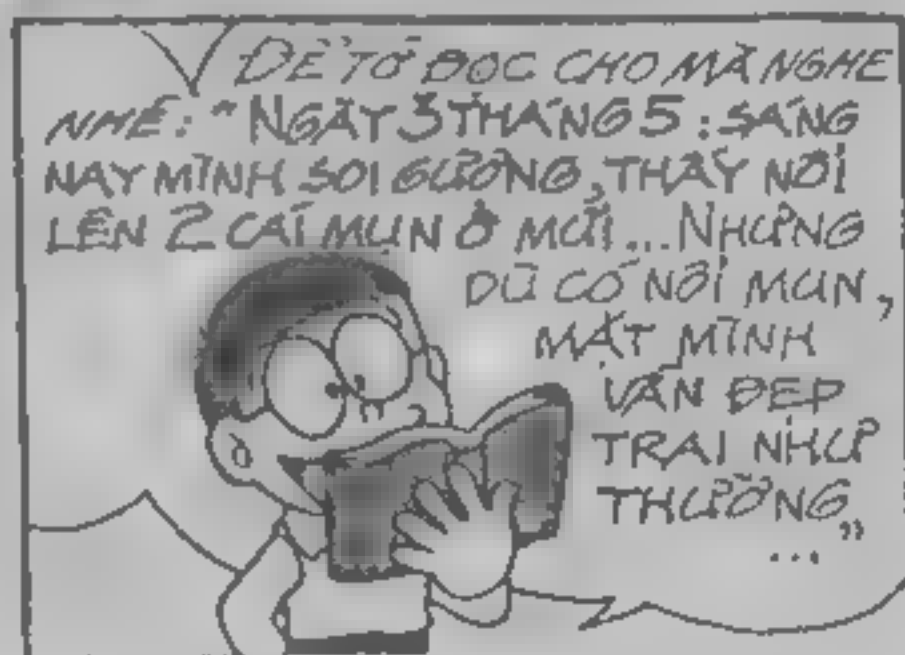 ĐỂ TỚ ĐỌC CHO MÀ NGHE
NHÉ: "NGÀY 3 THÁNG 5: SÁNG
NAY MÌNH SOI GƯƠNG, THẤY NỔI
LÊN 2 CÁI MỤN Ở MŨI... NHƯNG
DÙ CÓ NỔI MỤN,
MẶT MÌNH
VẪN ĐẸP
TRAI NHƯ
THƯỜNG
..."